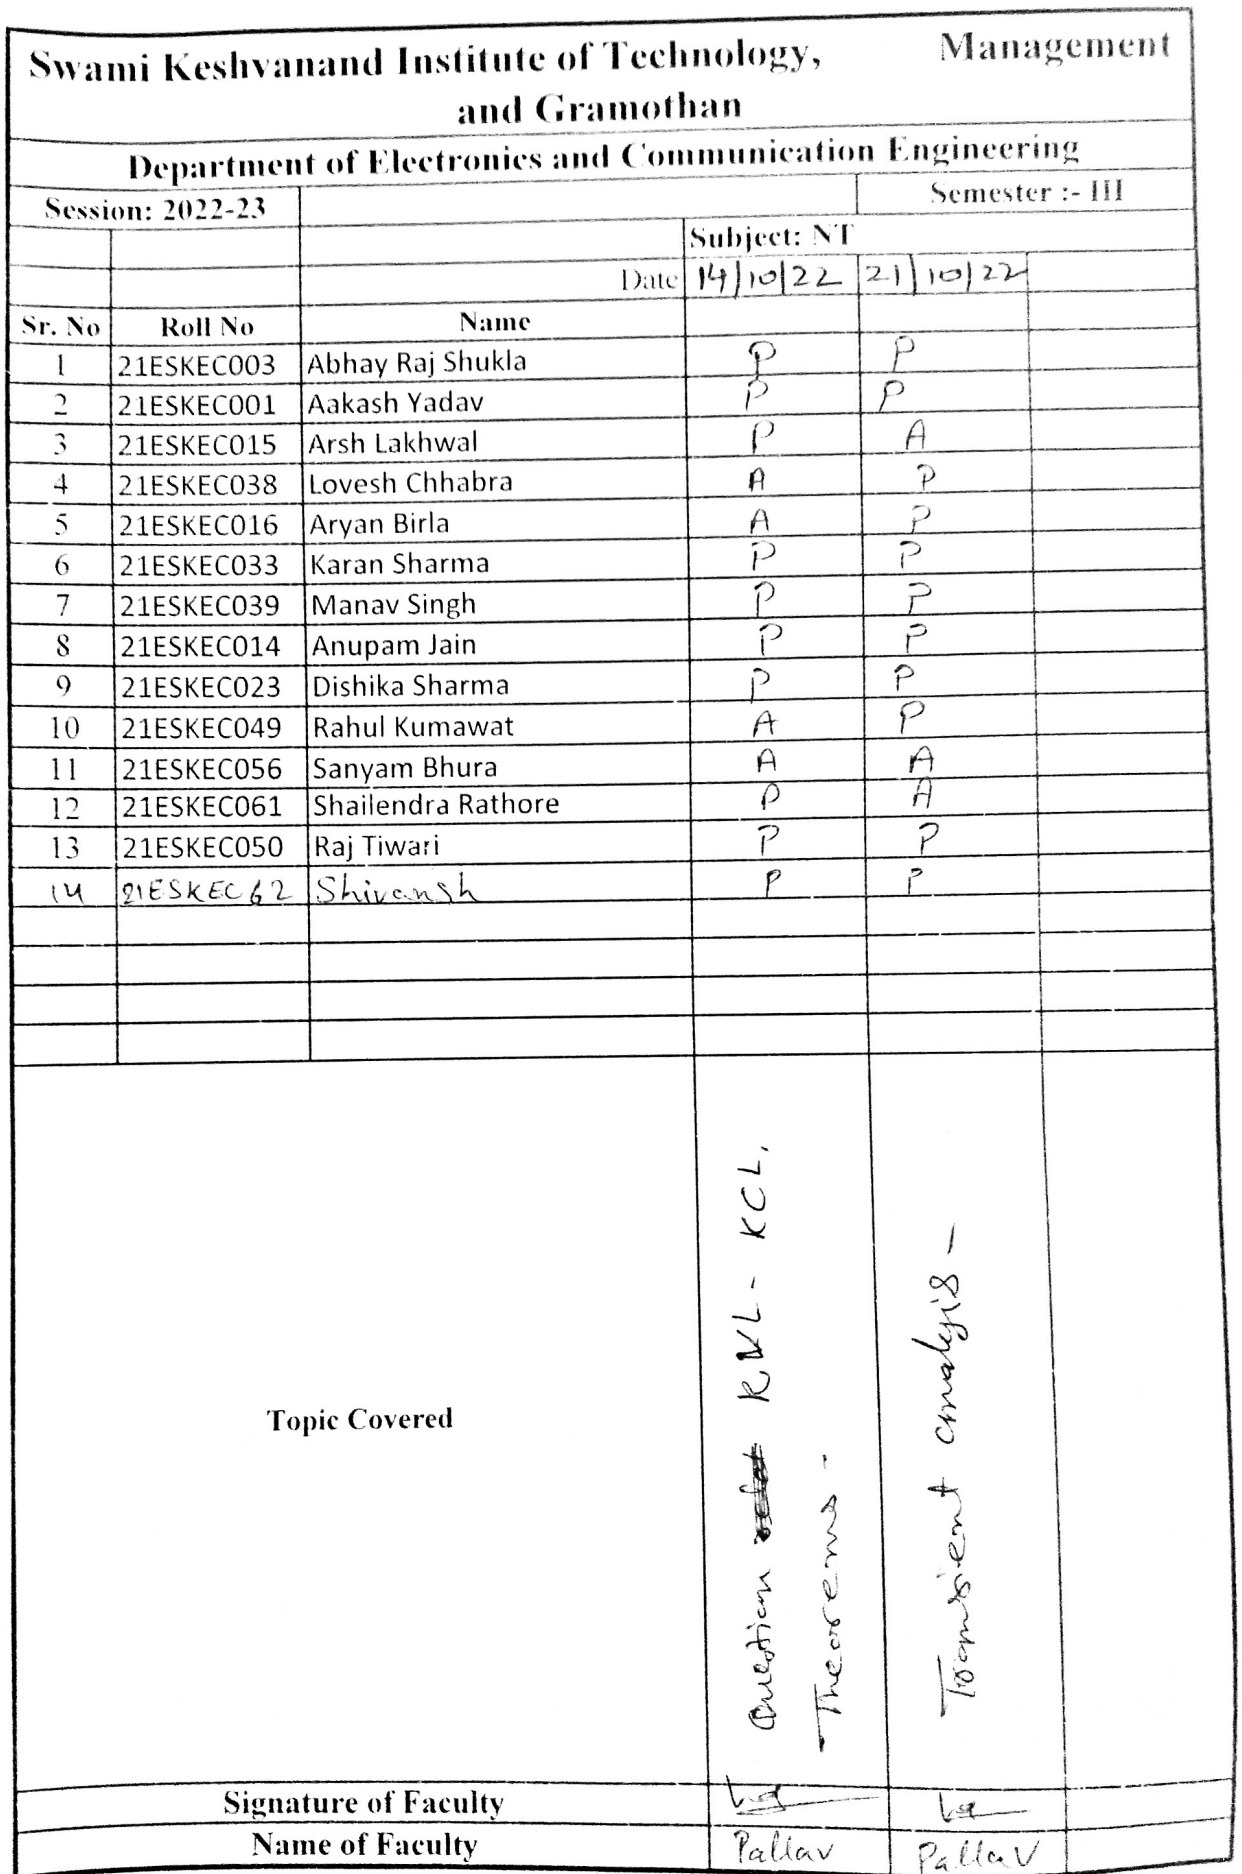 Swami Keshvanand Institute of Technology, Management
and Gramothan
Department of Electronics and Communication Engineering
Session: 2022-23 Semester :- III
Subject: NT
Date 14/10/22 21/10/22
Sr. No Roll No Name
1 21ESKEC003 Abhay Raj Shukla P P
2 21ESKEC001 Aakash Yadav P P
3 21ESKEC015 Arsh Lakhwal P A
4 21ESKEC038 Lovesh Chhabra A P
5 21ESKEC016 Aryan Birla A P
6 21ESKEC033 Karan Sharma P P
7 21ESKEC039 Manav Singh P P
8 21ESKEC014 Anupam Jain P P
9 21ESKEC023 Dishika Sharma P P
10 21ESKEC049 Rahul Kumawat A P
11 21ESKEC056 Sanyam Bhura A A
12 21ESKEC061 Shailendra Rathore P A
13 21ESKEC050 Raj Tiwari P P
14 21ESKEC62 Shivansh P P
Topic Covered
Question KVL - KCL,
Theorems -
Transient analysis -
Signature of Faculty
Name of Faculty Pallav Pallav